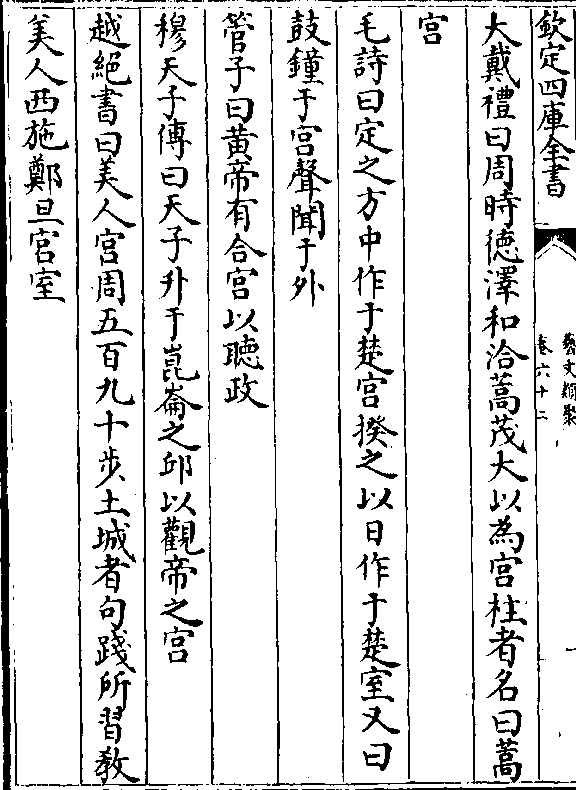 欽定四庫全書
藝文類聚
卷六十二
大戴禮曰周時徳澤和洽蒿茂大以為宫柱者名曰蒿
宫
毛詩曰定之方中作于楚宫揆之以日作于楚室又曰
鼓鐘于宫聲聞于外
管子曰黄帝有合宫以聴政
穆天子傳曰天子升于崑崙之邱以觀帝之宫
越絶書曰美人宫周五百九十步土城者句踐所習教
美人西施鄭旦宫室